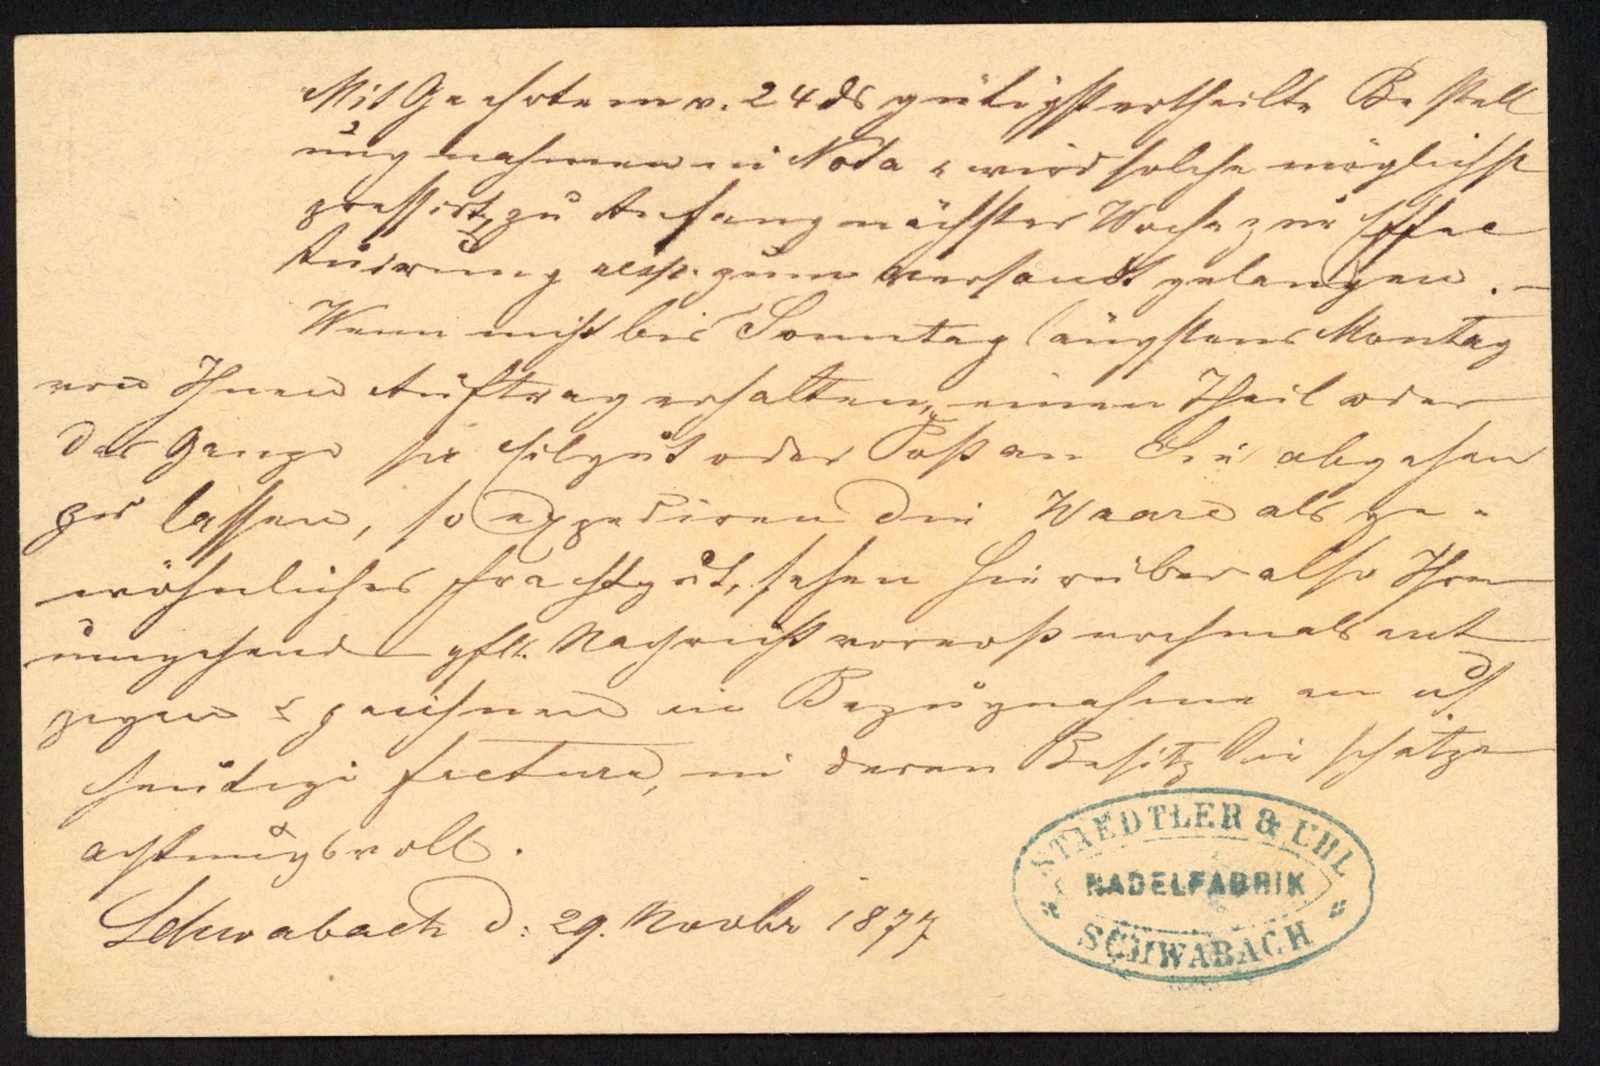 Mit Geehrtem v. 24 ds gütigst ertheilte Bestell
ung nahmen in Nota & wird solche möglichst
pressirt, zu Anfang nächster Woche zur Effec
tuirung resp. zum Versandt gelangen. –
Wenn nicht bis Sonntag längstens Montag
von Ihnen Auftrag erhalten, einen Theil oder
das Ganze per Eilgut oder Post an Sie abgehen
zu lassen, so expediren die Waare als ge-
wöhnliches Frachtgut, sehen hierüber also Ihrer
umgehend gfll. Nachricht nochmals ent
gegen & zeichnen in Bezugnahme an
heutige Factura, in deren Besitz Sie schätze
achtungsvoll.
Schwabach d: 29. Novbr 1877
STAEDTLER & UHL
NADELFABRIK
SCHWABACH